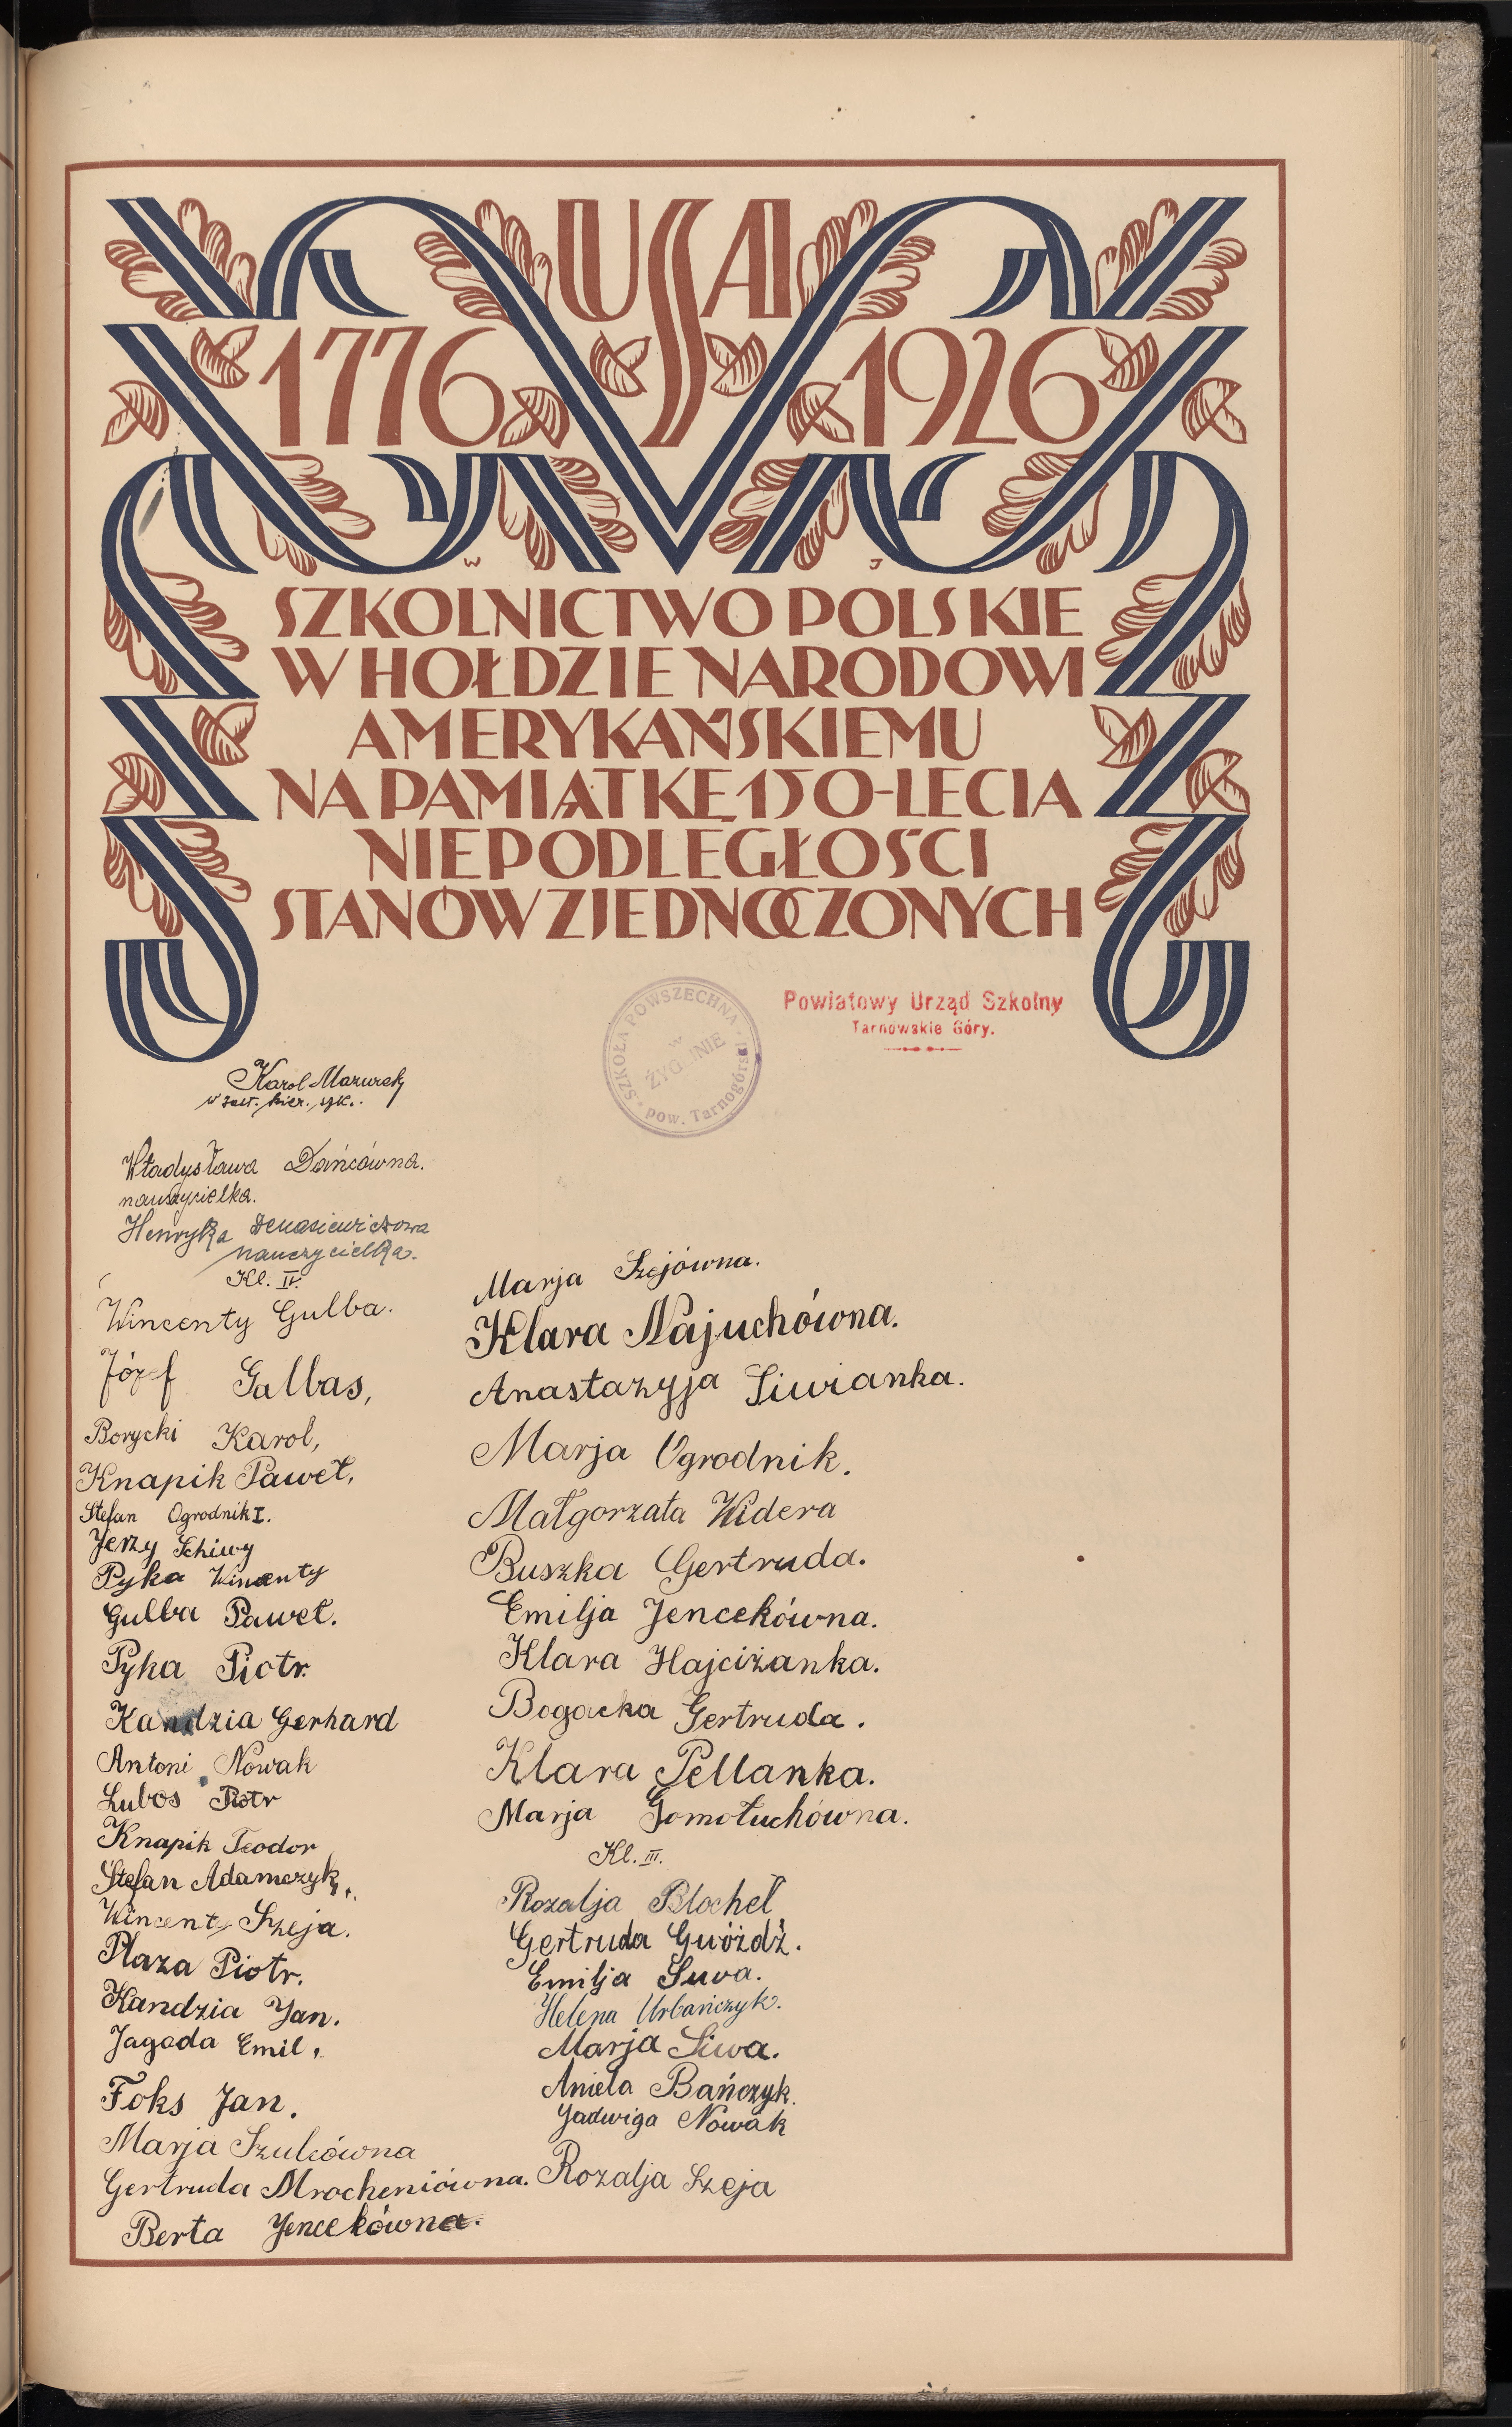 USA
1776 1926
W J
SZKOLNICTWO POLSKIE
W HOŁDZIE NARODOWI
AMERYKAŃSKIEMU
NA PAMIĄTKĘ 150-LECIA
NIEPODLEGŁOŚCI
STANÓW ZJEDNOCZONYCH
SZKOŁA POWSZECHNA
w
ŻYGLINIE
pow. Tarnogórski
Powiatowy Urząd Szkolny
Tarnowskie Góry.
Karol Mazurek
w zast. kier. szk.
Władysława Dańcówna.
nauczycielka.
Henryka
nauczycielka.
Kl. IV.
Wincenty Gulba.
Józef Galbas,
Borycki Karol,
Knapik Paweł,
Stefan Ogrodnik I.
Jerzy Schiwy
Pyka Wincenty
Gulba Paweł.
Pyka Piotr.
Kandzia Gerhard
Antoni Nowak
Lubos Piotr
Knapik Teodor
Stefan Adamczyk,
Wincenty Szeja.
Plaza Piotr.
Kandzia Jan.
Jagoda Emil,
Foks Jan.
Marja Szulcówna
Gertruda Mrocheniówna.
Berta Jencekówna.
Marja Szejówna.
Klara Najuchówna.
Anastazyja Siwianka.
Marja Ogrodnik.
Małgorzata Widera
Buszka Gertruda.
Emilja Jencekówna.
Klara Hajciżanka.
Bogacka Gertruda.
Klara Pellanka.
Marja Gomołuchówna.
Kl. III.
Rozalja Błocheł
Gertruda Gwóżdź.
Emilja Suwa.
Helena Urbańczyk.
Marja Siwa.
Aniela Bańczyk.
Jadwiga Nowak
Rozalja Szeja